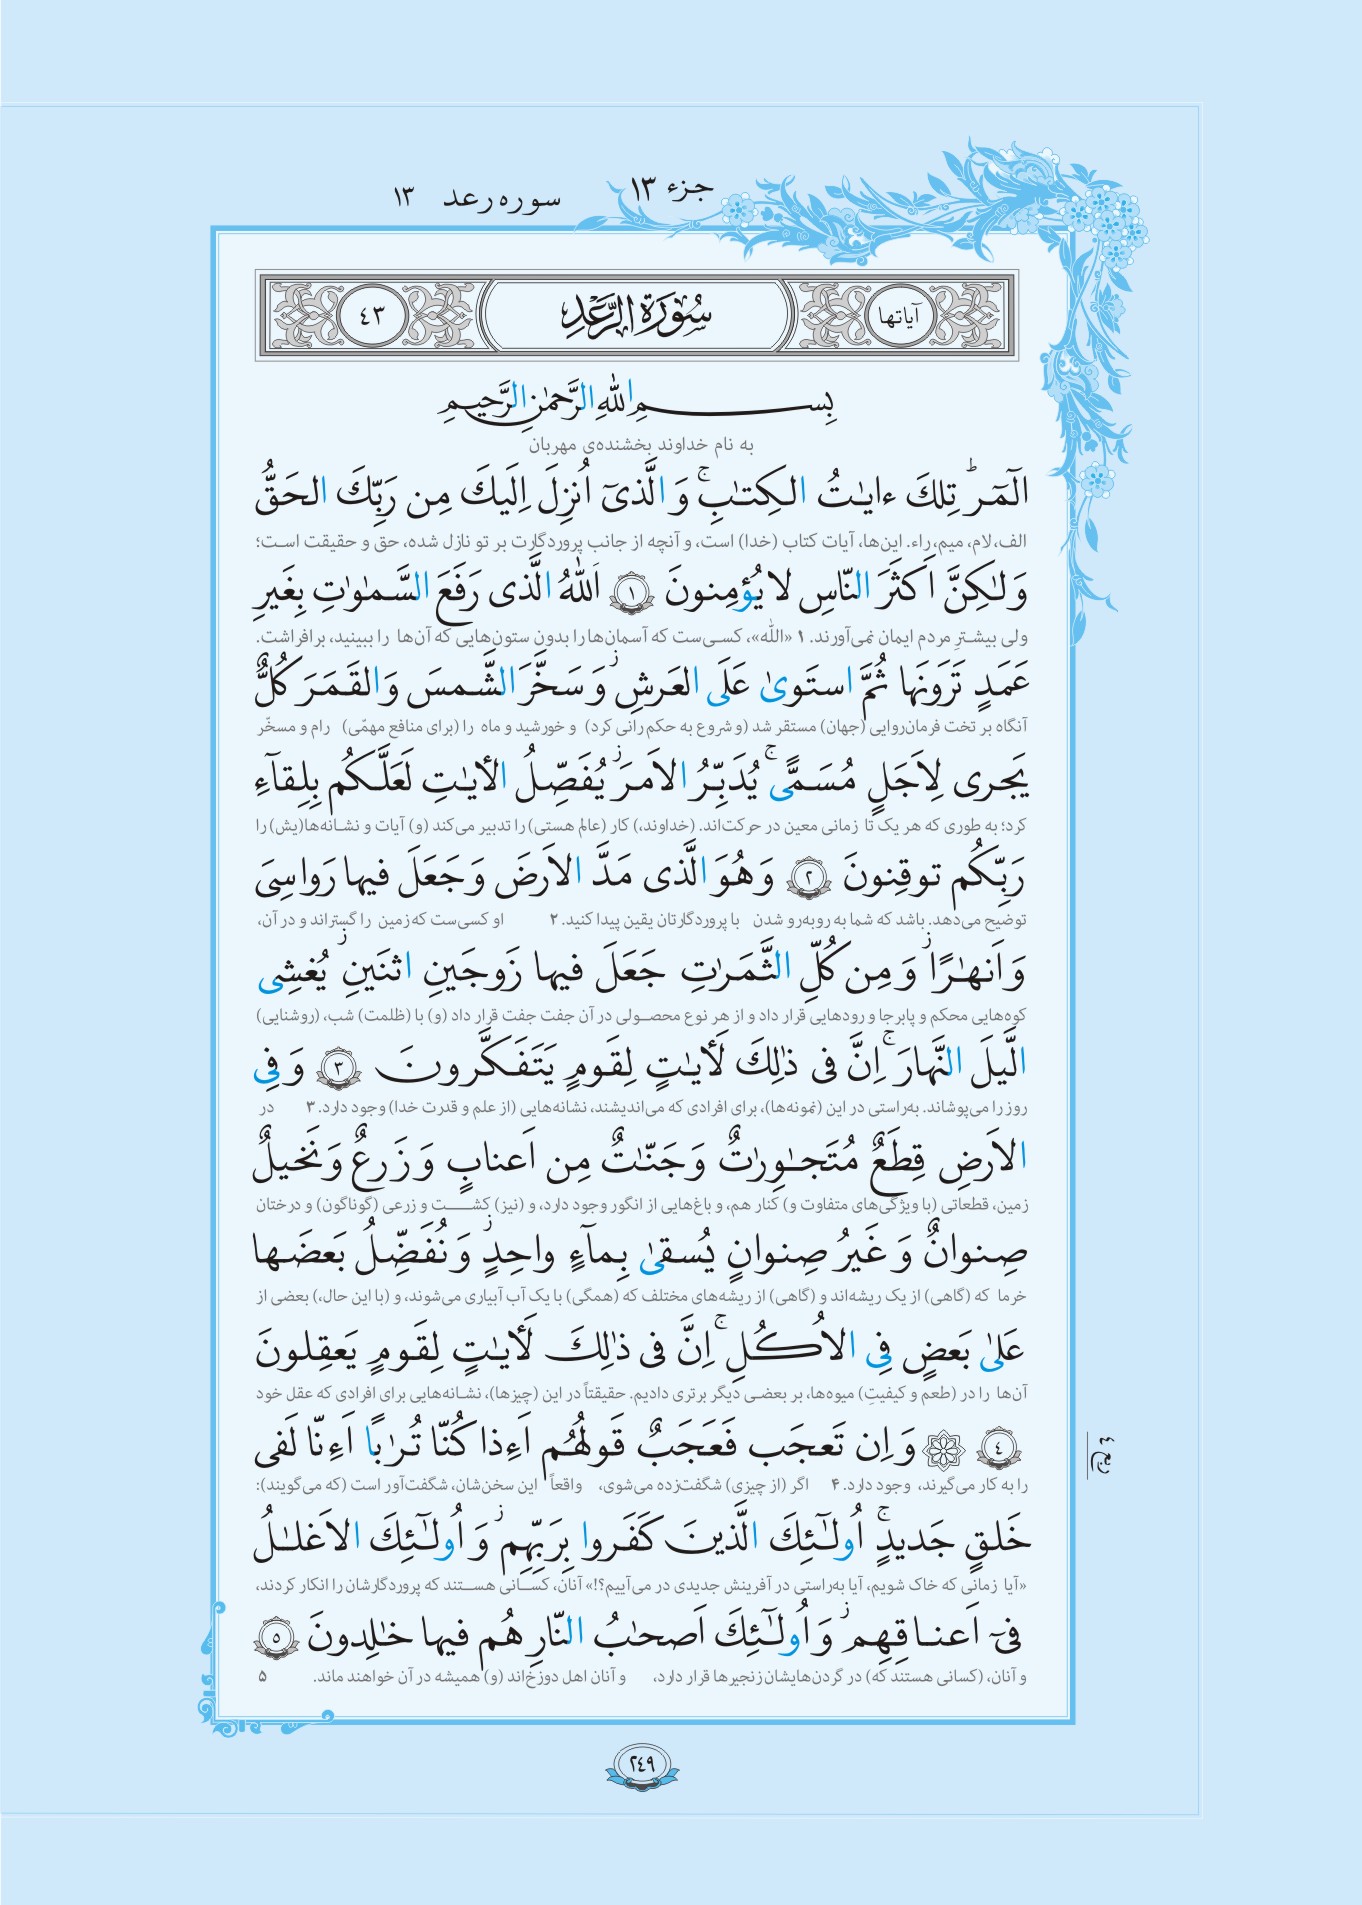 جزء ۱۳ سوره رعد ۱۳
آیاتها سُورَةُ الرَّعْدِ ٤٣
بِسمِ اللّٰهِ الرَّحمٰنِ الرَّحیمِ
به نام خداوند بخشنده‌ی مهربان
الٓمٓرۚ تِلكَ ءایٰتُ الكِتٰبِۚ وَ الَّذیٓ اُنزِلَ اِلَیكَ مِن رَبِّكَ الحَقُّ
الف، لام، میم، راء. این‌ها، آیات کتاب (خدا) است، و آنچه از جانب پروردگارت بر تو نازل شده، حق و حقیقت است؛
وَلٰكِنَّ اَكثَرَ النّاسِ لا یُؤمِنونَ ۱ اَللّٰهُ الَّذی رَفَعَ السَّمٰوٰتِ بِغَیرِ
ولی بیشترِ مردم ایمان نمی‌آورند. ۱ «اللّٰه»، کسی‌ست که آسمان‌ها را بدونِ ستون‌هایی که آن‌ها را ببینید، برافراشت.
عَمَدٍ تَرَونَها ثُمَّ استَویٰ عَلَی العَرشِ وَ سَخَّرَ الشَّمسَ وَ القَمَرَ كُلٌّ
آنگاه بر تخت فرمان‌روایی (جهان) مستقر شد (و شروع به حکم‌رانی کرد) و خورشید و ماه را (برای منافع مهمّی) رام و مسخّر
یَجری لِاَجَلٍ مُسَمًّیۚ یُدَبِّرُ الاَمرَ یُفَصِّلُ الأیٰتِ لَعَلَّكُم بِلِقآءِ
کرد؛ به طوری که هر یک تا زمانی معین در حرکت‌اند. (خداوند،) کار (عالم هستی) را تدبیر می‌کند (و) آیات و نشانه‌ها(یش) را
رَبِّكُم توقِنونَ ۲ وَ هُوَ الَّذی مَدَّ الاَرضَ وَ جَعَلَ فیها رَواسِیَ
توضیح می‌دهد. باشد که شما به روبه‌رو شدن با پروردگارتان یقین پیدا کنید. ۲ او کسی‌ست که زمین را گستراند و در آن،
وَ اَنهٰرًا وَ مِن كُلِّ الثَّمَرٰتِ جَعَلَ فیها زَوجَینِ اثنَینِ یُغشِی
کوه‌هایی محکم و پابرجا و رودهایی قرار داد و از هر نوع محصولی در آن جفت جفت قرار داد (و) با (ظلمت) شب، (روشنایی)
الَّیلَ النَّهارَۚ اِنَّ فی ذٰلِكَ لَأیٰتٍ لِقَومٍ یَتَفَكَّرونَ ۳ وَ فِی
روز را می‌پوشاند. به‌راستی در این (نمونه‌ها)، برای افرادی که می‌اندیشند، نشانه‌هایی (از علم و قدرت خدا) وجود دارد. ۳ در
الاَرضِ قِطَعٌ مُتَجٰوِرٰتٌ وَ جَنّٰتٌ مِن اَعنابٍ وَ زَرعٌ وَ نَخیلٌ
زمین، قطعاتی (با ویژگی‌های متفاوت و) کنار هم، و باغ‌هایی از انگور وجود دارد، و (نیز) کشت و زرعی (گوناگون) و درختان
صِنوانٌ وَ غَیرُ صِنوانٍ یُسقیٰ بِمآءٍ واحِدٍ وَ نُفَضِّلُ بَعضَها
خرما که (گاهی) از یک ریشه‌اند و (گاهی) از ریشه‌های مختلف که (همگی) با یک آب آبیاری می‌شوند، و (با این حال،) بعضی از
عَلیٰ بَعضٍ فِی الاُكُلِۚ اِنَّ فی ذٰلِكَ لَأیٰتٍ لِقَومٍ یَعقِلونَ
آن‌ها را در (طعم و کیفیتِ) میوه‌ها، بر بعضی دیگر برتری دادیم. حقیقتاً در این (چیزها)، نشانه‌هایی برای افرادی که عقل خود
٤ وَ اِن تَعجَب فَعَجَبٌ قَولُهُم اَءِذا كُنّا تُرٰبًا اَءِنّا لَفی
ربع ٤
را به کار می‌گیرند، وجود دارد. ۴ اگر (از چیزی) شگفت‌زده می‌شوی، واقعاً این سخن‌شان، شگفت‌آور است (که می‌گویند):
خَلقٍ جَدیدٍۚ اُولٰٓئِكَ الَّذینَ كَفَروا بِرَبِّهِم وَ اُولٰٓئِكَ الاَغلٰلُ
«آیا زمانی که خاک شویم، آیا به‌راستی در آفرینش جدیدی در می‌آییم؟!» آنان، کسانی هستند که پروردگارشان را انکار کردند،
فیٓ اَعناقِهِم وَ اُولٰٓئِكَ اَصحٰبُ النّارِ هُم فیها خٰلِدونَ ٥
و آنان، (کسانی هستند که) در گردن‌هایشان زنجیرها قرار دارد، و آنان اهل دوزخ‌اند (و) همیشه در آن خواهند ماند. ۵
٢٤٩